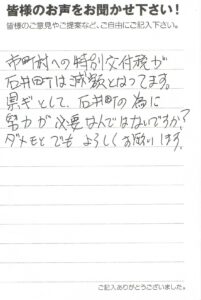 皆様のお声をお聞かせ下さい！
皆様のご意見やご提案など、ご自由にご記入下さい。
市町村への特別交付税が
石井町は減額となってます。
県ギとして、石井町の為に
努力が必要なんではないですか？
ダメモとでもよろしくお願いします。
ご記入ありがとうございました。